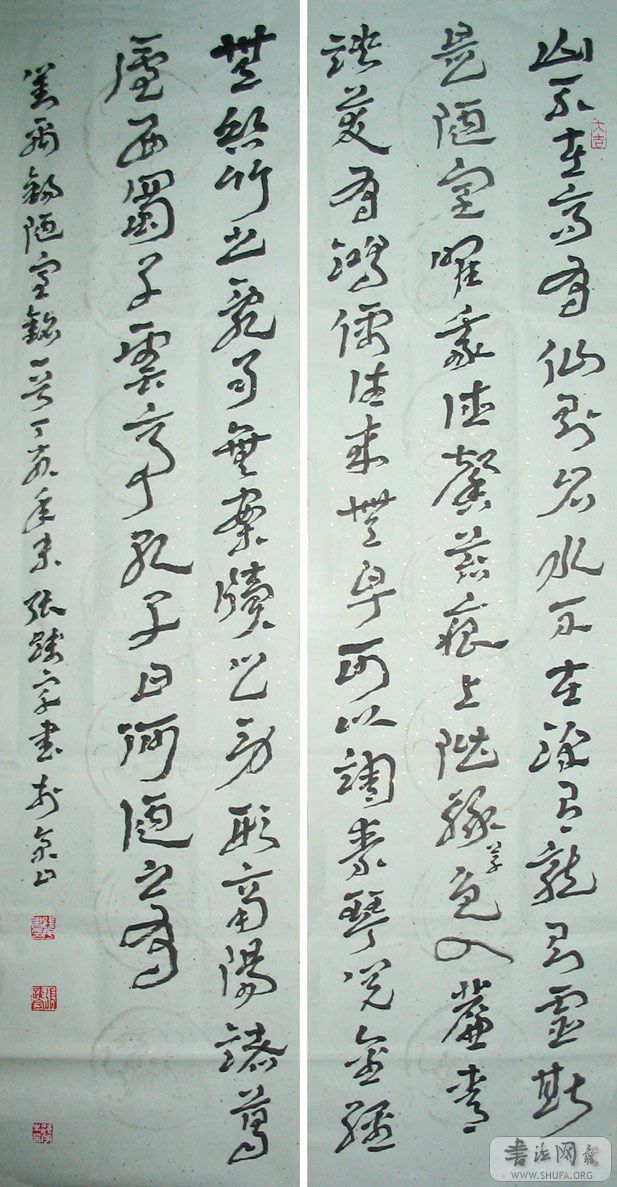 山不在高有仙則名水不在深有龍則靈斯
是陋室唯吾德馨苔痕上階綠草色入簾青
談笑有鴻儒往來無白丁可以調素琴閱金經
無絲竹之亂耳無案牘之勞形南陽諸葛
廬西蜀子雲亭孔子曰何陋之有
劉禹錫陋室銘一首丁亥年末張書於泉山
大吉
书法网
WWW.SHUFA.ORG